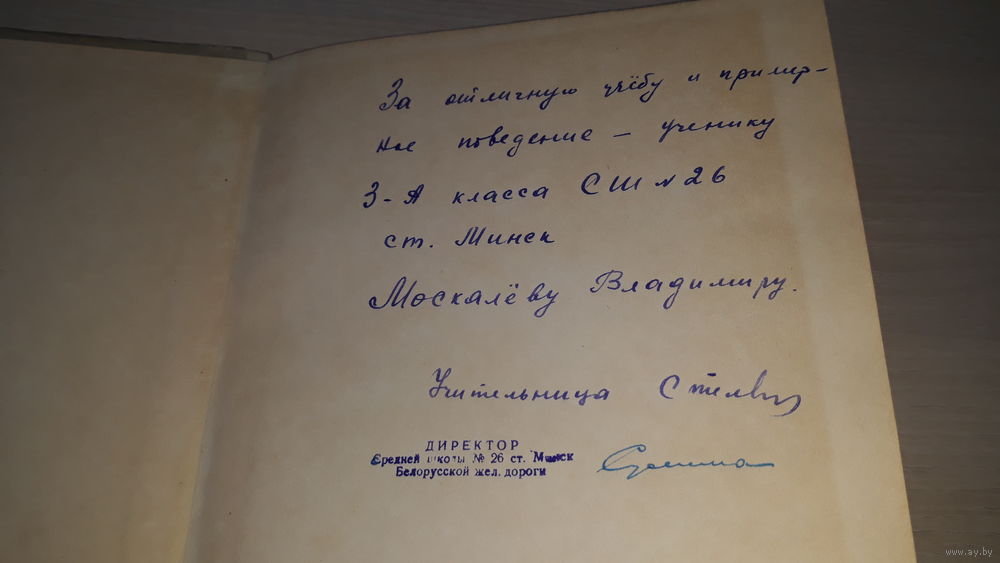 За отличную учёбу и пример-
ное поведение — ученику
3-А класса СШ № 26
ст. Минск
Москалёву Владимиру.
Учительница
ДИРЕКТОР
Средней школы № 26 ст. Минск
Белорусской жел. дороги
www.ay.by